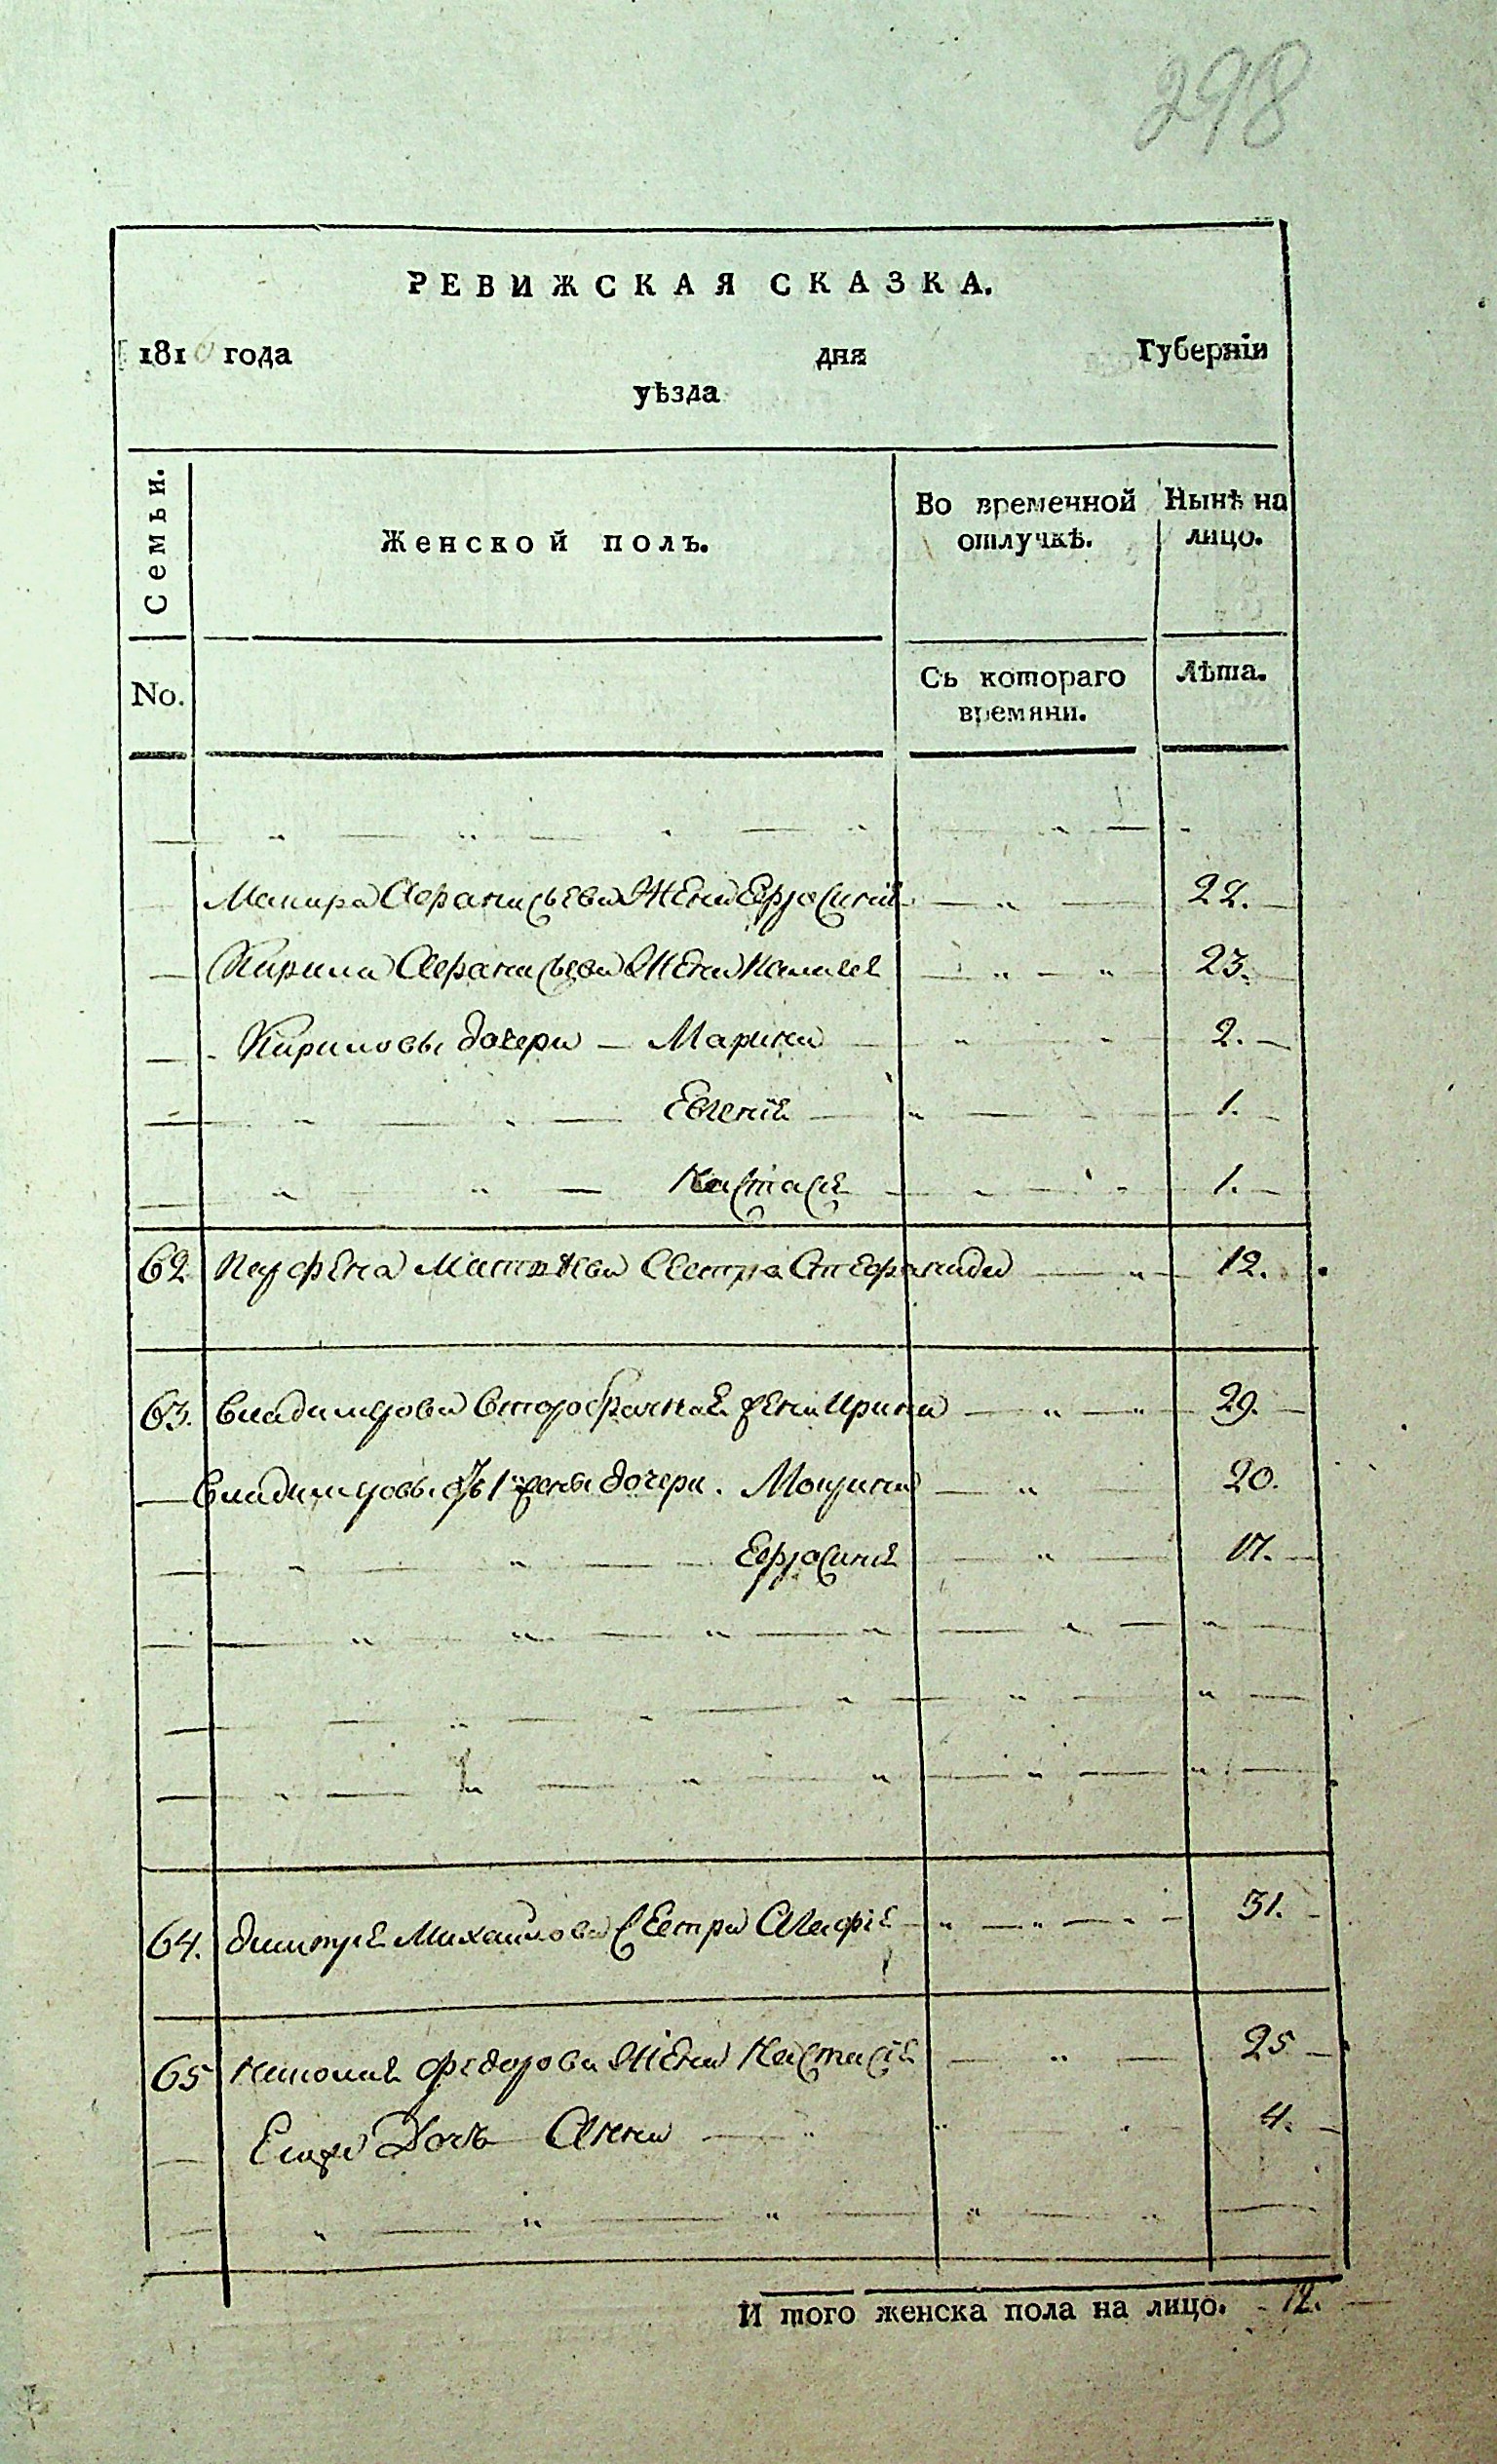 298
РЕВИЖСКАЯ СКАЗКА.
1816 года дня Губерніи
уѣзда
Семьи. Женской полъ. Во временной отлучкѣ. Нынѣ на лицо.
No. Съ котораго времяни. Лѣта.
Макара Афанасьева Жена Ефросинія 22.
Кирила Афанасьева Жена 23.
Кириловы дочери Марина 2.
Евгенія 1.
Настасія 1.
62 Матвѣева Сестра Стефанида 12.
63. Владимирова второбрачная жена Ирина 29.
Владимировы отъ 1 жены дочери. 20.
Ефросинія 17.
64. Димитрія Михайлова Сестра 31.
65 Николая Федорова Жена Настасія 25
Его Дочь Анна 4.
И того женска пола на лицо. 12.